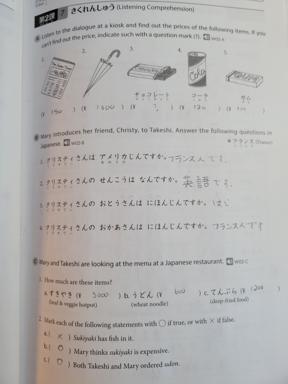 第2課 7 きくれんしゅう (Listening Comprehension)
A Listen to the dialogue at a kiosk and find out the prices of the following items. If you
can't find out the price, indicate such with a question mark (?). W02-A
1. 2. 3. 4. 5.
Coke
チョコレート コーラ
(¥ 150 ) (¥ 1000 ) (¥ ? ) (¥ 120 ) (¥
B Mary introduces her friend, Christy, to Takeshi. Answer the following questions in
Japanese. W02-B
*フランス (France)
1. クリスティさんは アメリカじんですか。フランス人です.
2. クリスティさんの せんこうは なんですか。英語です.
3. クリスティさんの おとうさんは にほんじんですか。はい
4. クリスティさんの おかあさんは にほんじんですか。フランス人です
C Mary and Takeshi are looking at the menu at a Japanese restaurant. W02-C
1. How much are these items?
a. すきやき (¥ 3000 ) b. うどん (¥ 600 ) c. てんぷら (¥ 1200 )
(beef & veggie hotpot) (wheat noodle) (deep fried food)
2. Mark each of the following statements with ○ if true, or with × if false.
a. ( × ) Sukiyaki has fish in it.
b. ( ○ ) Mary thinks sukiyaki is expensive.
c. ( ○ ) Both Takeshi and Mary ordered udon.